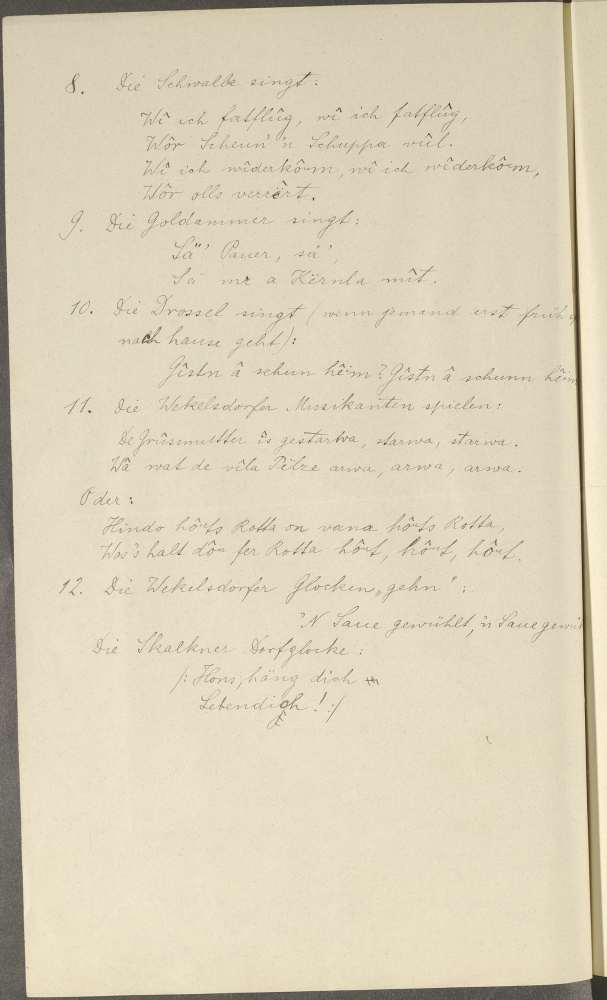 8. Die Schwalbe singt:
Wî ich fatflûg, wî ich fatflûg,
Wôr Scheun' 'n Schuppa vûl.
Wî ich wîderkôm, wî ich wîderkôm,
Wôr olls verzêrt.
9. Die Goldammer singt:
Sä' Pauer, sä',
Sä mr a Kërnla mît.
10. Die Drossel singt (wenn jemand erst früh
nach hause geht):
Gîstn â schun hêim? Gîstn â schunn hêim
11. Die Wekelsdorfer Musikanten spielen:
De Grûsmutter îs gestarba, starwa, starwa.
Wâ wat de vîla Pëlze arwa, arwa, arwa.
Oder:
Hindo hôrts Rotta on vana hôrts Rotta,
Wos's halt dôu fer Rotta hôt, hôt, hôt.
12. Die Wekelsdorfer Glocken "gehn":
'N Saue gewühlt, 'n Saue
Die Skalkner Dorfglocke:
/: Hons, häng dich
Lebendich! :/